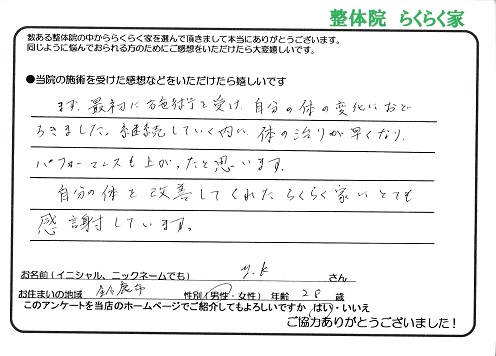 整体院 らくらく家
数ある整体院の中かららくらく家を選んで頂きまして本当にありがとうございます。
同じように悩んでおられる方のためにご感想をいただけたら大変嬉しいです。
●当院の施術を受けた感想などをいただけたら嬉しいです
まず、最初に施術を受け、自分の体の変化におど
ろきました。継続していく内に、体の治りが早くなり、
パフォーマンスも上がったと思います。
自分の体を改善してくれたらくらく家にとても
感謝しています。
お名前(イニシャル、ニックネームでも) y.k さん
お住まいの地域 鈴鹿市 性別(男性・女性) 年齢 28 歳
このアンケートを当店のホームページでご紹介してもよろしいですか はい・いいえ
ご協力ありがとうございました!